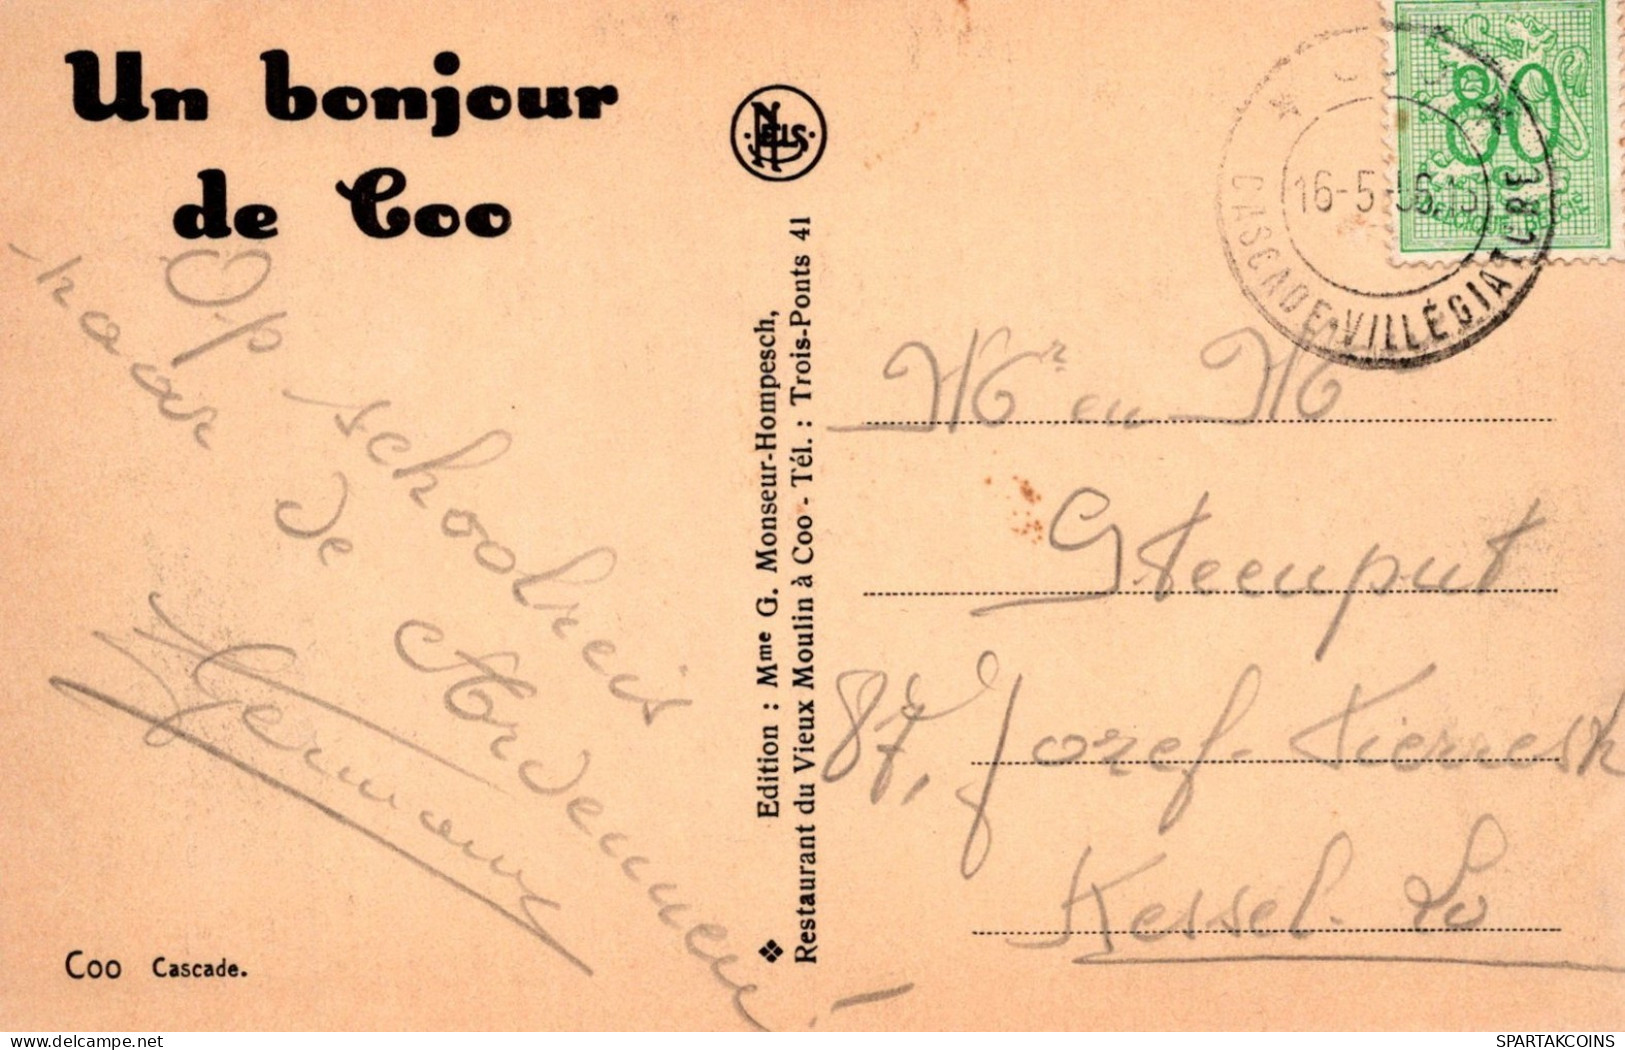 Un bonjour
de Coo
Op schoolreis
naar de Ardennen!
Germaine
Coo Cascade.
NELS
Edition : Mme G. Monseur-Hompesch,
❖ Restaurant du Vieux Moulin à Coo - Tél. : Trois-Ponts 41
80
BELGIQUE-BELGIE
* COO *
16-5-56.15
CASCADE-VILLÉGIATURE
Mr en M
Steenput
87, Jozef Pierrestr
Kessel-Lo
SPARTAKCOINS